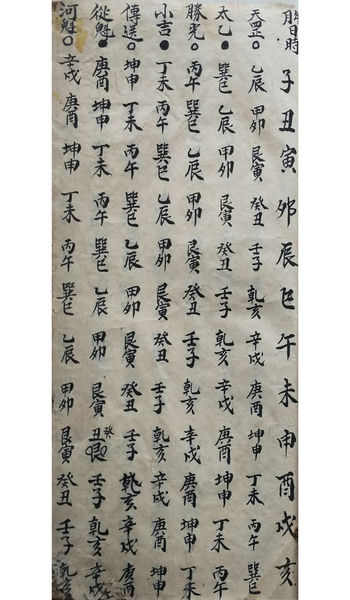 月日時 子 丑 寅 卯 辰 巳 午 未 申 酉 戌 亥
天罡○ 乙辰 甲卯 艮寅 癸丑 壬子 乾亥 辛戌 庚酉 坤申 丁未 丙午 巽巳
太乙● 巽巳 乙辰 甲卯 艮寅 癸丑 壬子 乾亥 辛戌 庚酉 坤申 丁未 丙午
勝先● 丙午 巽巳 乙辰 甲卯 艮寅 癸丑 壬子 乾亥 辛戌 庚酉 坤申 丁未
小吉● 丁未 丙午 巽巳 乙辰 甲卯 艮寅 癸丑 壬子 乾亥 辛戌 庚酉 坤申
傳送○ 坤申 丁未 丙午 巽巳 乙辰 甲卯 艮寅 癸丑 壬子 乾亥 辛戌 庚酉
從魁● 庚酉 坤申 丁未 丙午 巽巳 乙辰 甲卯 艮寅 癸丑 壬子 乾亥 辛戌
河魁○ 辛戌 庚酉 坤申 丁未 丙午 巽巳 乙辰 甲卯 艮寅 癸丑 壬子 乾亥